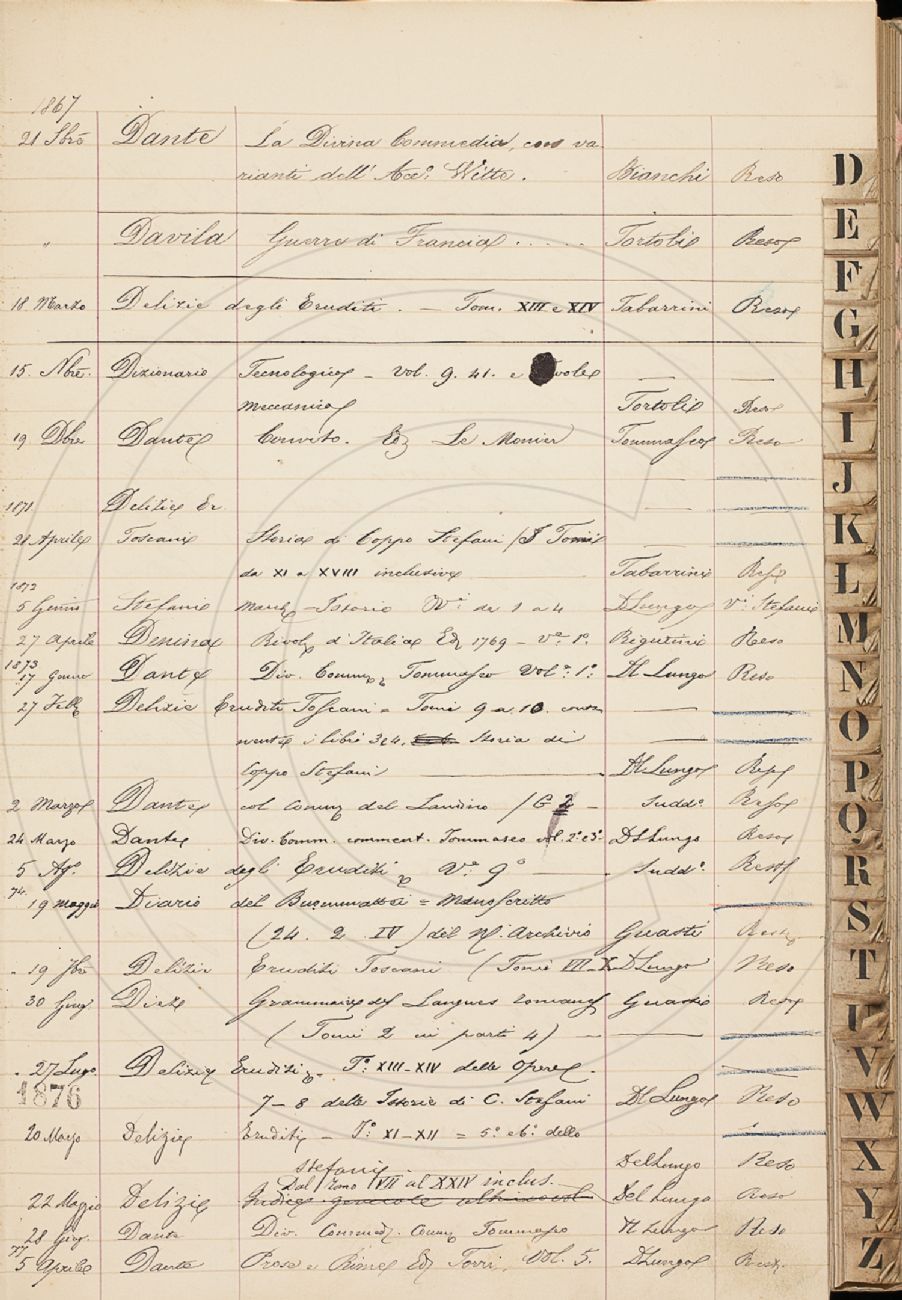 1867
21 Dante La Divina Commedia, con va
rianti dell' Witte. Bianchi Reso
" Davila Guerra di Francia ..... Tortoli Reso
18. Marzo Delizie degli Eruditi. - Tom. XIII e XIV Tabarrini Reso
15. Nbre. Dizionario Tecnologico - Vol. 9. 41. e
meccanica Tortoli Reso
19 Dbre Dante Convito. Ed Le Monier Tommaseo Reso
1871 Delizie Er.
21 Aprile Toscani Storia di Coppo Stefani / Tomi
da XI a XVIII inclusive Tabarrini Reso
1872
5 Stefani Istorie de 1 a 4 DLungo Vi Stefani
27 Aprile Denina Rivol d'Italia Ed 1769 - Vo. 1o. Rigutini Reso
1873
17 Dante Div. Comm Tommaseo Vol. 1o. Del Lungo Reso
27 Delizie Eruditi Toscani = Tomi 9 a 10. conte
nenti i libri 3 e 4. Storia di
Coppo Stefani Del Lungo
2 Marzo Dante col Comm del Landino / G 2 - Sudd°.
24 Marzo Dante Div. Comm. comment. Tommaseo vol. 2° e 3° DLungo Reso
5 Delizie degli Eruditi Vo. 9° Sudd°.
74.
19 Maggio Diario del = Manoscritto
(24. 2. IV) del N. Archivio Guasti
- 19 Delizie Eruditi Toscani (Tomi VII-X DLungo Reso
30 Dietz Grammaire des Langues romanes Guasti Reso
( Tomi 2 in parti 4)
- 27 Lug. Delizie Eruditi - To. XIII-XIV delle Opere -
1876 7-8 delle Istorie di C. Stefani Del Lungo Reso
20 Marzo Delizie Eruditi - To. XI-XII = 5° e 6° dello
Stefani Del Lungo Reso
Dal Tomo VII al XXIV inclus.
22 Maggio Delizie Indice generale Del Lungo Reso
28 Giug. Dante Div. Commed. Comm Tommaseo Reso
77
5 Aprile Dante Prose e Rime Ed Torri, Vol. 5. DLungo
D
E
F
G
H
I
J
K
L
M
N
O
P
Q
R
S
T
U
V
W
X
Y
Z